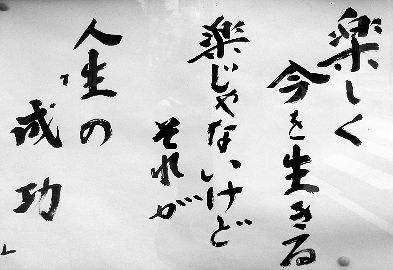 楽しく
今を生きる
楽じゃないけど
それが
人生の
成功